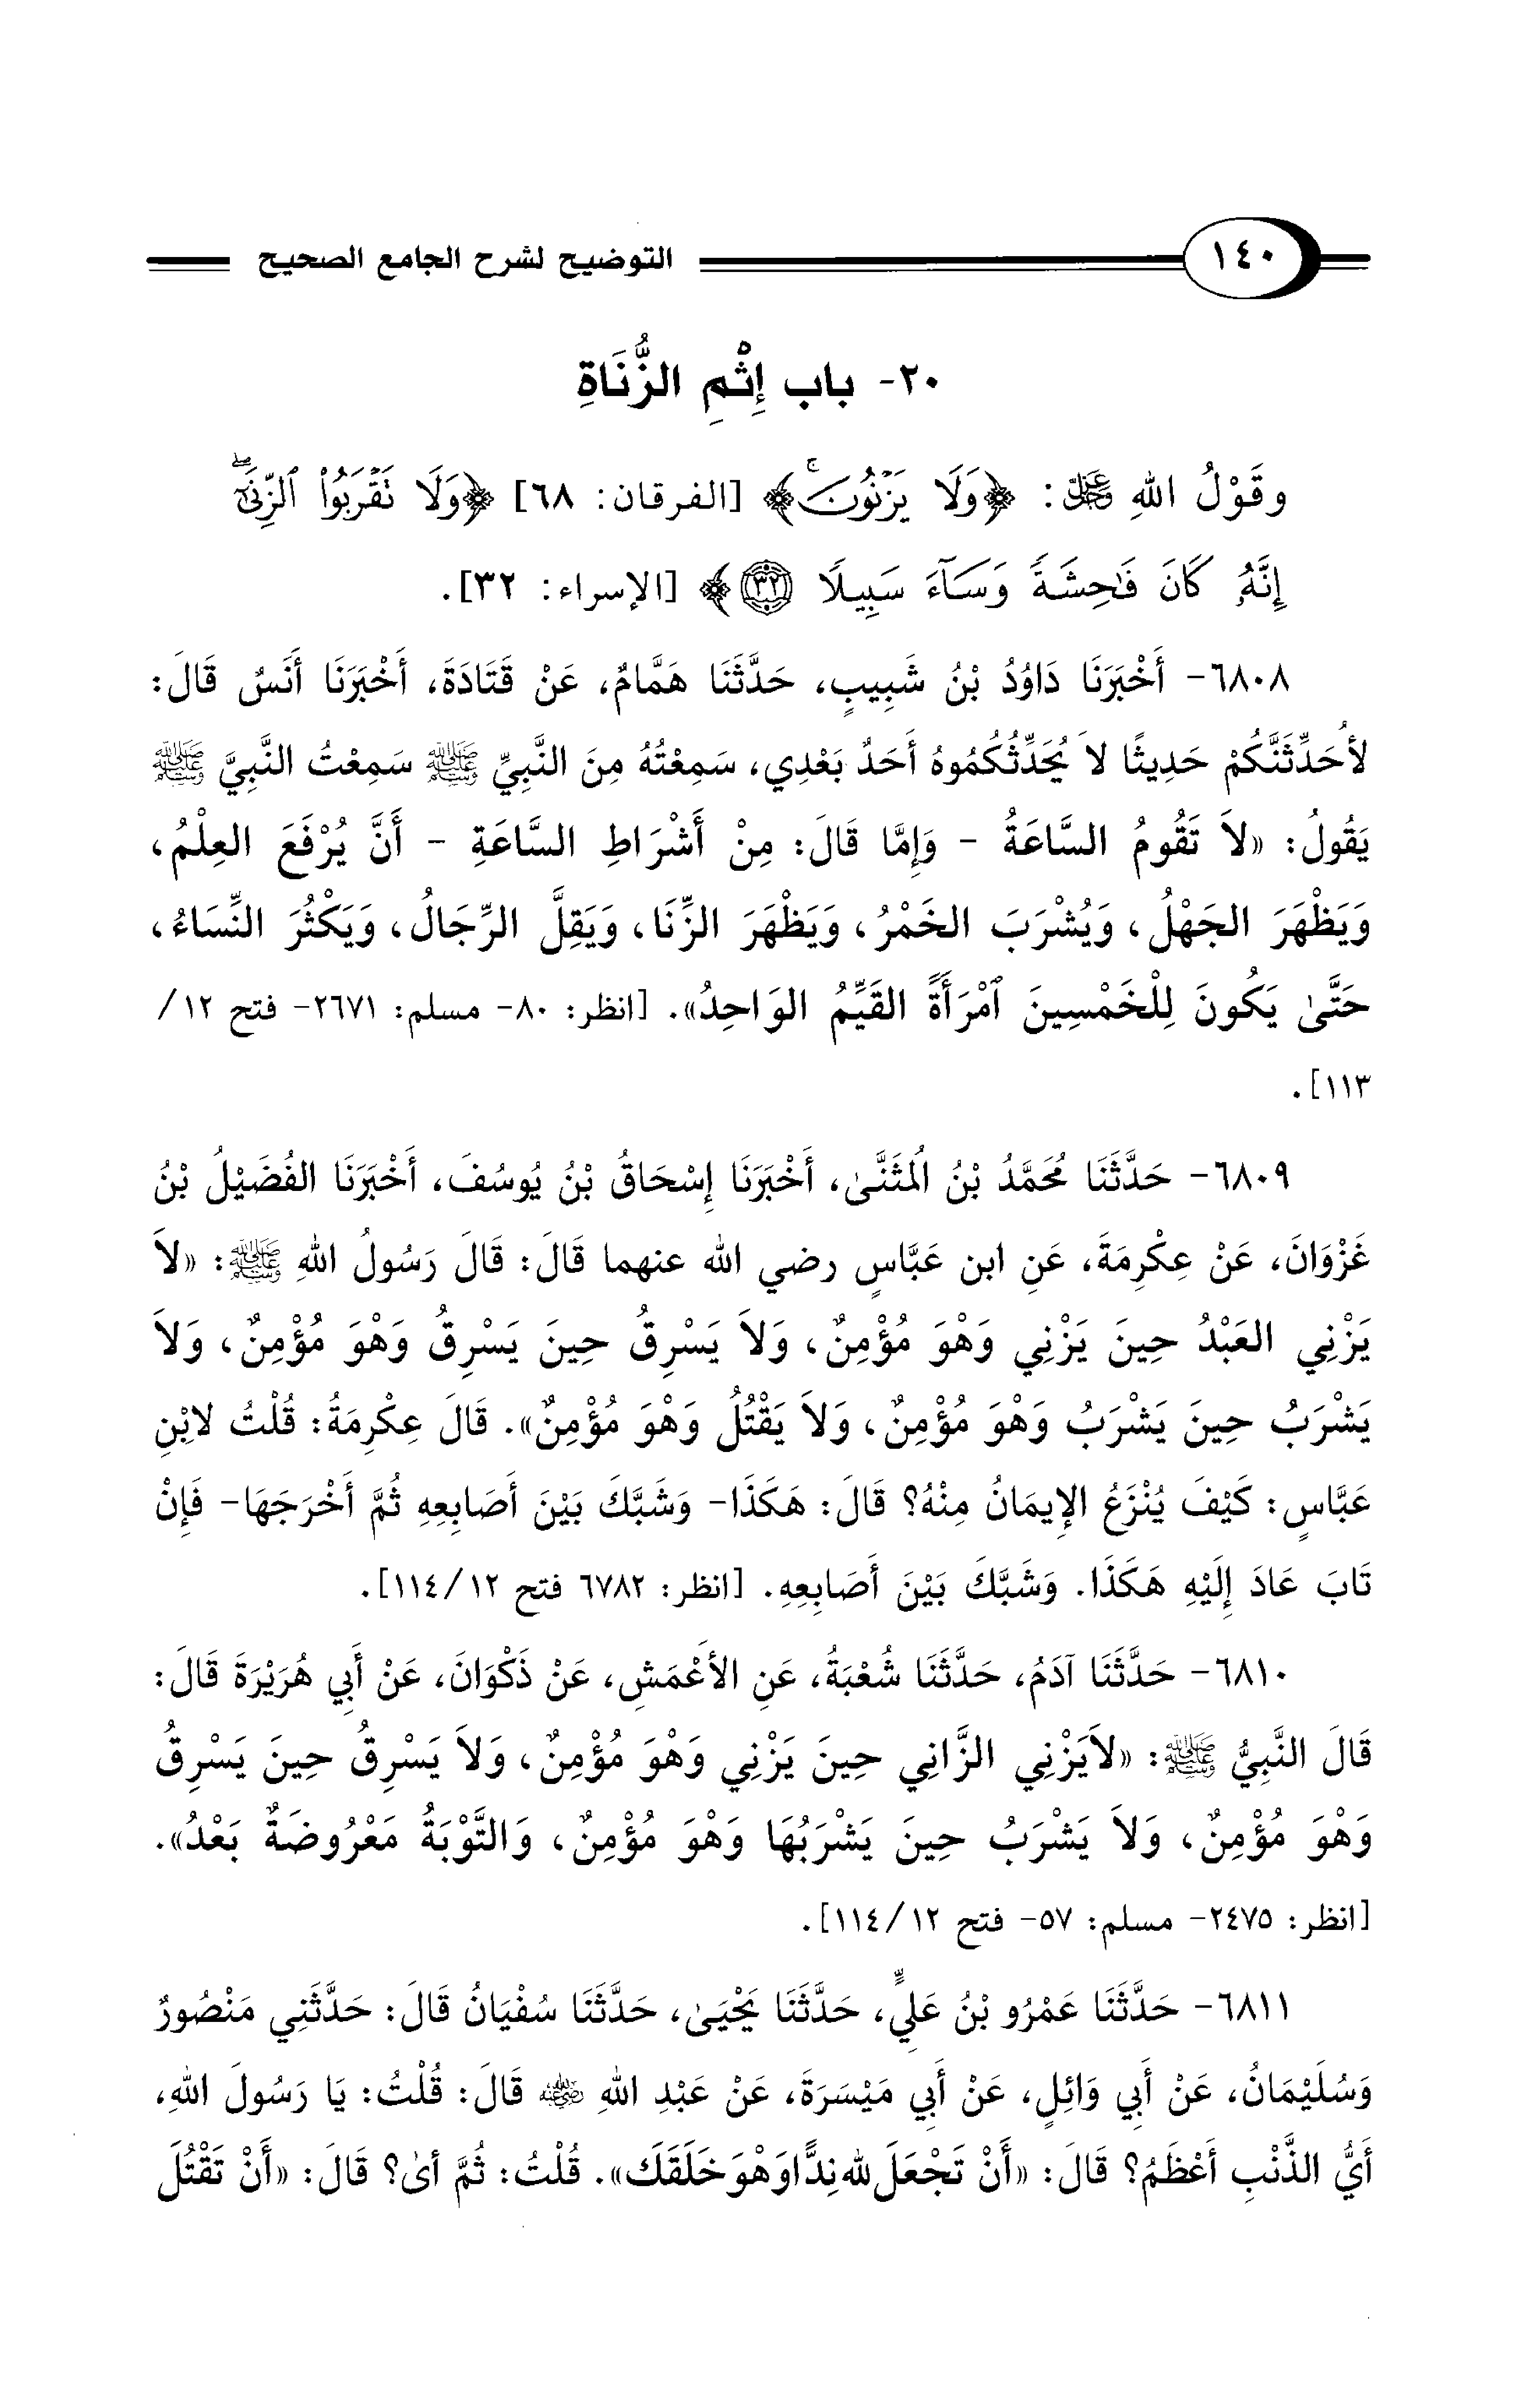 ١٤٠ التوضيح لشرح الجامع الصحيح
٢٠- باب إِثْمِ الزُّنَاةِ
وقَوْلُ اللهِ ﷿: ﴿وَلَا يَزْنُونَۚ﴾ [الفرقان: ٦٨] ﴿وَلَا نَقْرَبُوا۟ ٱلزِّنَىٰٓۖ
إِنَّهُۥ كَانَ فَٰحِشَةً وَسَآءَ سَبِيلًا ٣٢﴾ [الإسراء: ٣٢].
٦٨٠٨- أَخْبَرَنَا دَاوُدُ بْنُ شَبِيبٍ، حَدَّثَنَا هَمَّامٌ، عَنْ قَتَادَةَ، أَخْبَرَنَا أَنَسٌ قَالَ:
لأُحَدِّثَنَّكُمْ حَدِيثًا لاَ يُحَدِّثُكُمُوهُ أَحَدٌ بَعْدِي، سَمِعْتُهُ مِنَ النَّبِيِّ ﷺ سَمِعْتُ النَّبِيَّ ﷺ
يَقُولُ: «لاَ تَقُومُ السَّاعَةُ - وَإِمَّا قَالَ: مِنْ أَشْرَاطِ السَّاعَةِ - أَنَّ يُرْفَعَ العِلْمُ،
وَيَظْهَرَ الجَهْلُ، وَيُشْرَبَ الخَمْرُ، وَيَظْهَرَ الزِّنَا، وَيَقِلَّ الرِّجَالُ، وَيَكْثُرَ النِّسَاءُ،
حَتَّىٰ يَكُونَ لِلْخَمْسِينَ ٱمْرَأَةً القَيِّمُ الوَاحِدُ». [انظر: ٨٠- مسلم: ٢٦٧١- فتح ١٢/
١١٣].
٦٨٠٩- حَدَّثَنَا مُحَمَّدُ بْنُ المُثَنَّىٰ، أَخْبَرَنَا إِسْحَاقُ بْنُ يُوسُفَ، أَخْبَرَنَا الفُضَيْلُ بْنُ
غَزْوَانَ، عَنْ عِكْرِمَةَ، عَنِ ابن عَبَّاسٍ رضي الله عنهما قَالَ: قَالَ رَسُولُ اللهِ ﷺ: «لاَ
يَزْنِي العَبْدُ حِينَ يَزْنِي وَهْوَ مُؤْمِنٌ، وَلاَ يَسْرِقُ حِينَ يَسْرِقُ وَهْوَ مُؤْمِنٌ، وَلاَ
يَشْرَبُ حِينَ يَشْرَبُ وَهْوَ مُؤْمِنٌ، وَلاَ يَقْتُلُ وَهْوَ مُؤْمِنٌ». قَالَ عِكْرِمَةُ: قُلْتُ لابْنِ
عَبَّاسٍ: كَيْفَ يُنْزَعُ الإِيمَانُ مِنْهُ؟ قَالَ: هَكَذَا- وَشَبَّكَ بَيْنَ أَصَابِعِهِ ثُمَّ أَخْرَجَهَا- فَإِنْ
تَابَ عَادَ إِلَيْهِ هَكَذَا. وَشَبَّكَ بَيْنَ أَصَابِعِهِ. [انظر: ٦٧٨٢ فتح ١٢/ ١١٤].
٦٨١٠- حَدَّثَنَا آدَمُ، حَدَّثَنَا شُعْبَةُ، عَنِ الأَعْمَشِ، عَنْ ذَكْوَانَ، عَنْ أَبِي هُرَيْرَةَ قَالَ:
قَالَ النَّبِيُّ ﷺ: «لاَيَزْنِي الزَّانِي حِينَ يَزْنِي وَهْوَ مُؤْمِنٌ، وَلاَ يَسْرِقُ حِينَ يَسْرِقُ
وَهْوَ مُؤْمِنٌ، وَلاَ يَشْرَبُ حِينَ يَشْرَبُهَا وَهْوَ مُؤْمِنٌ، وَالتَّوْبَةُ مَعْرُوضَةٌ بَعْدُ».
[انظر: ٢٤٧٥- مسلم: ٥٧- فتح ١٢/ ١١٤].
٦٨١١- حَدَّثَنَا عَمْرُو بْنُ عَلِيٍّ، حَدَّثَنَا يَحْيَىٰ، حَدَّثَنَا سُفْيَانُ قَالَ: حَدَّثَنِي مَنْصُورٌ
وَسُلَيْمَانُ، عَنْ أَبِي وَائِلٍ، عَنْ أَبِي مَيْسَرَةَ، عَنْ عَبْدِ اللهِ ﵁ قَالَ: قُلْتُ: يَا رَسُولَ اللهِ،
أَيُّ الذَّنْبِ أَعْظَمُ؟ قَالَ: «أَنْ تَجْعَلَ لله نِدًّا وَهْوَ خَلَقَكَ». قُلْتُ: ثُمَّ أىٰ؟ قَالَ: «أَنْ تَقْتُلَ